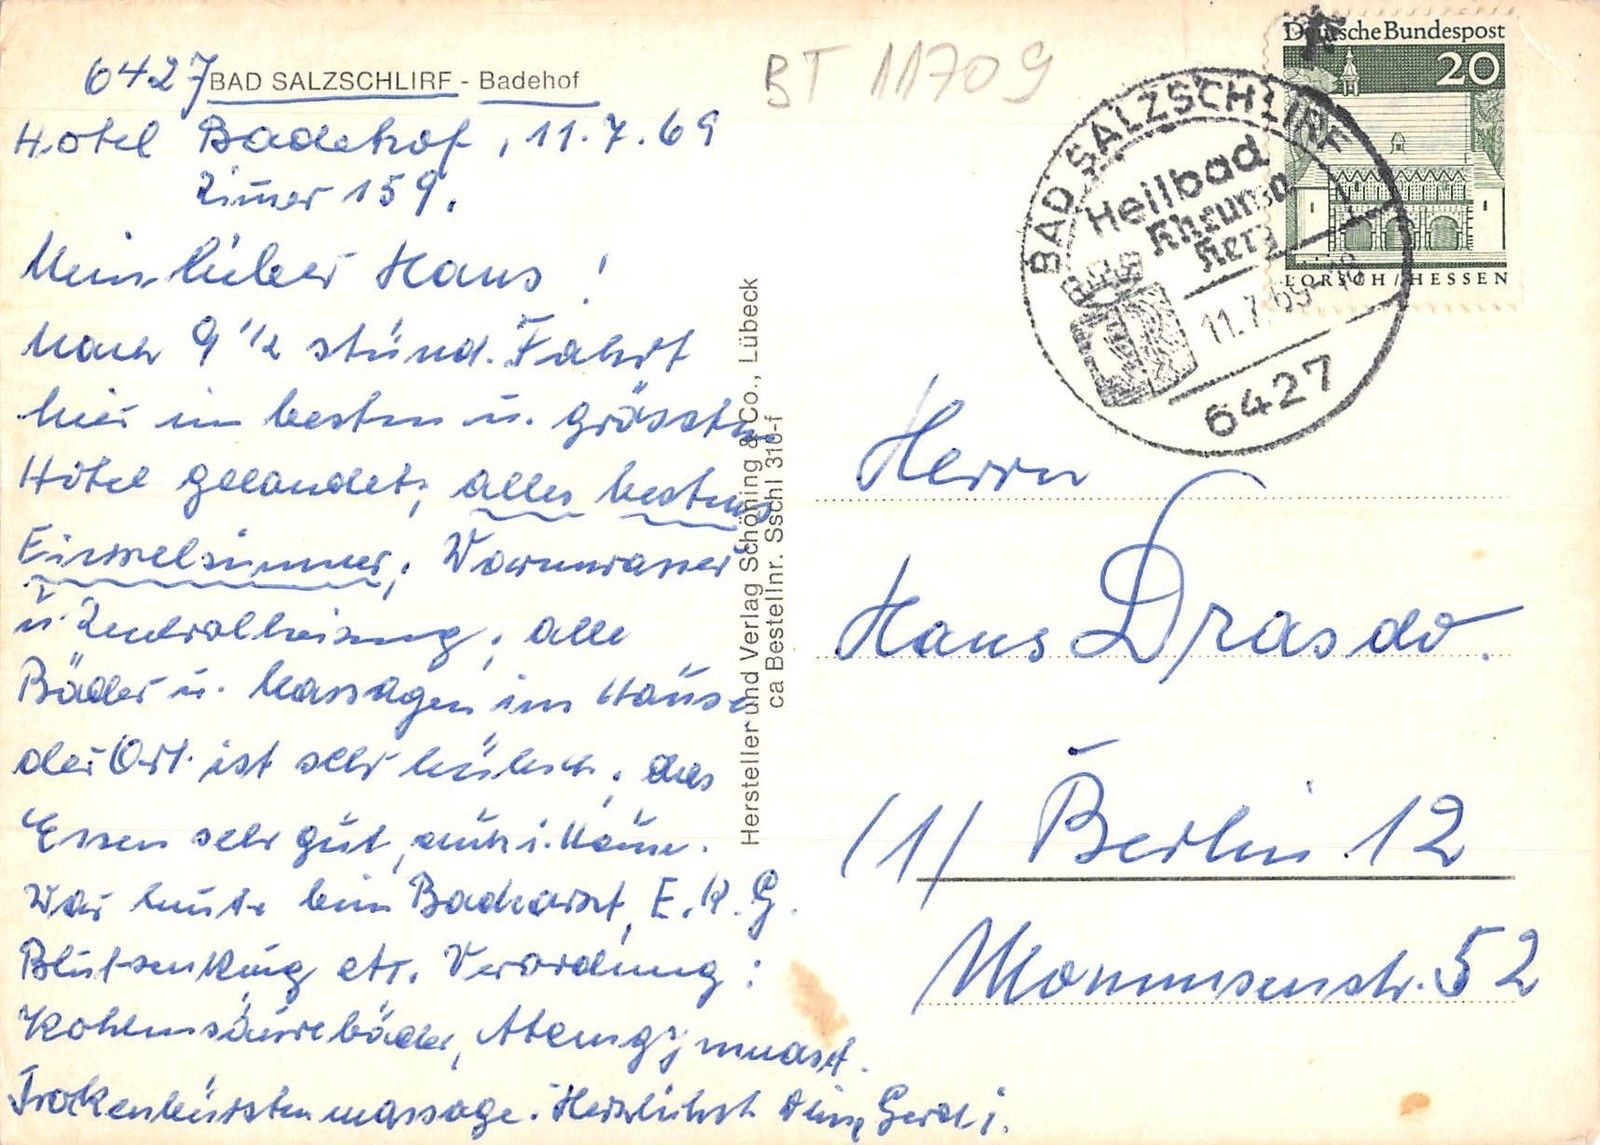 6427 BAD SALZSCHLIRF - Badehof
Hotel Badehof, 11.7.69
Zimer 159.
Mein lieber Hans!
Nach 9 1/2 stünd. Fahrt
hier im besten u. grössten
Hotel gelandet, alles bestens
Einzelzimmer, Warmwasser
u. Zentralheizung, alle
Bäder u. Massagen im Hause
der Ort ist sehr hübsch, das
Essen sehr gut, auch i. Hause.
War heute beim Badearzt, E.K.G.
Blutsenkung etc. Verordnung:
Kohlensäurebäder, Atemgymnast.
Trockenbürstenmassage. Herzlichst Deine Gerdi.
Hersteller und Verlag Schöning & Co., Lübeck
ca Bestellnr. Sschl 310-f
BT 11709
Deutsche Bundespost
20
LORSCH/HESSEN
BAD SALZSCHLIRF
Heilbad
Rheuma
Herz
11.7.69-18
6427
Herrn
Hans Drasdo.
(1) Berlin 12
Mommsenstr. 52